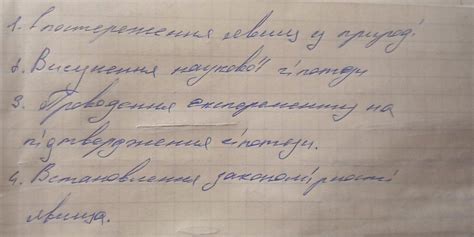 1. Спостереження явищ у природі
2. Висунення наукової гіпотези
3. Проведення експеременту на
підтвердження гіпотези.
4. Встановлення закономірності
явища.